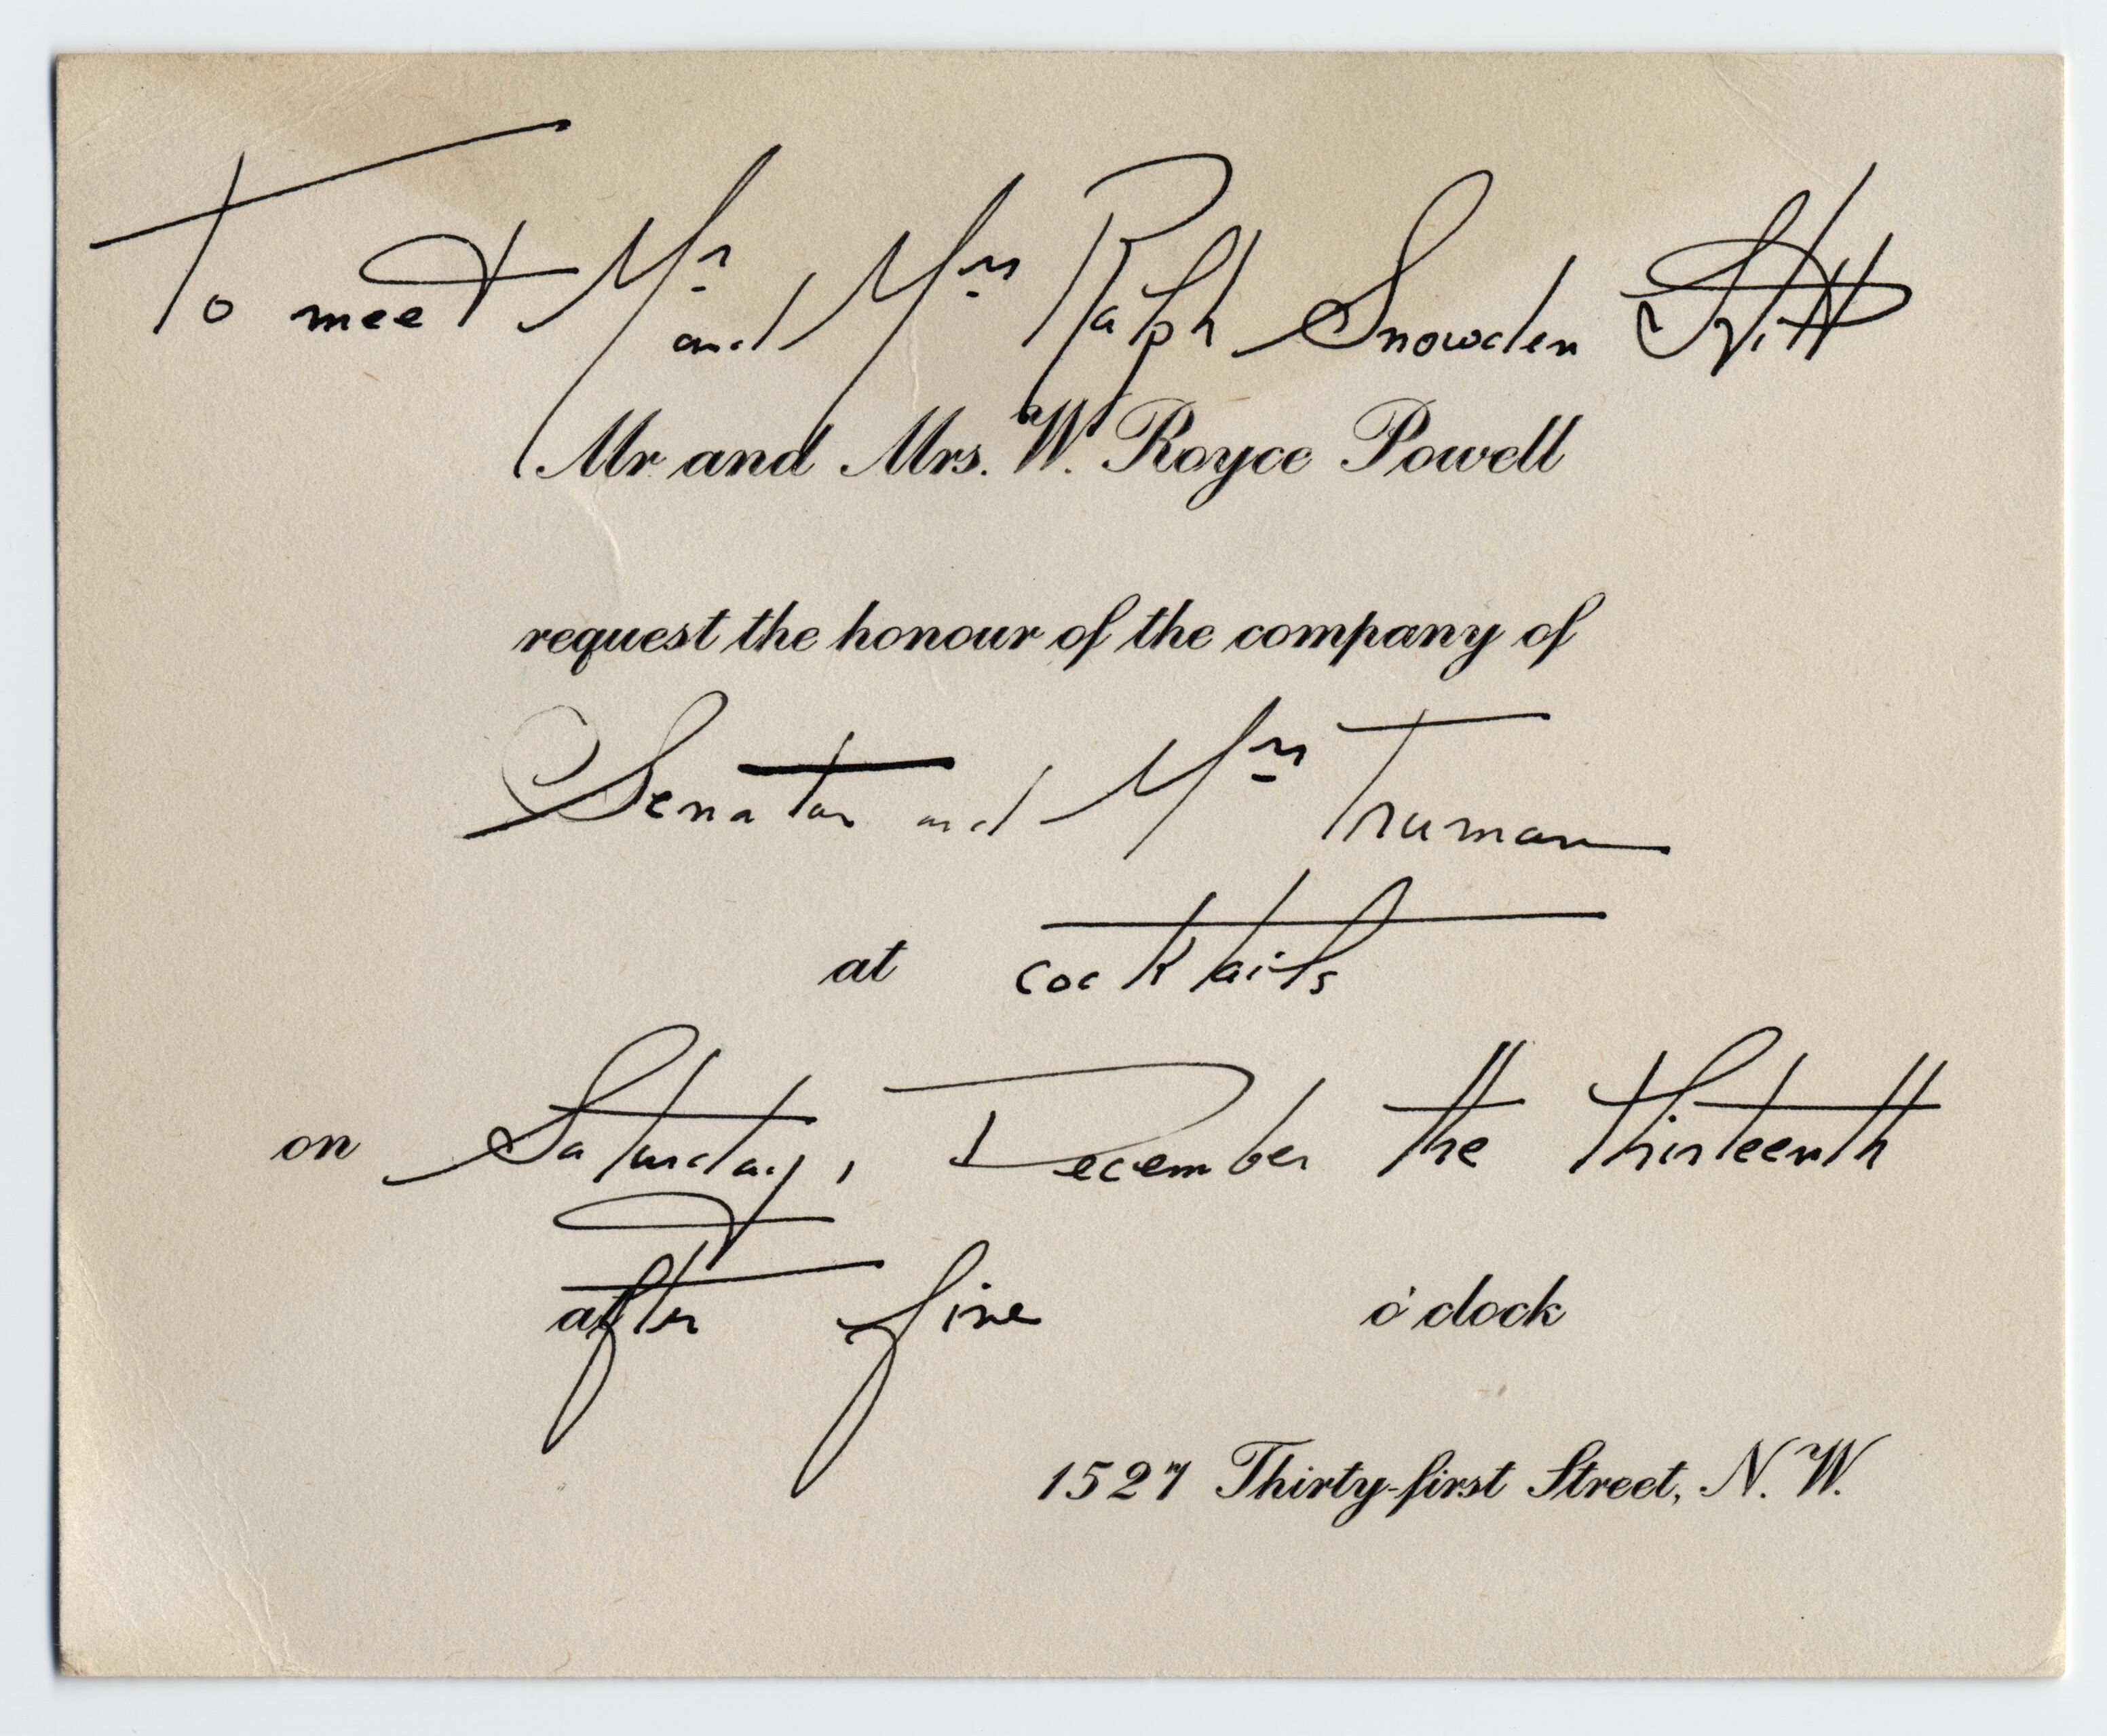 To meet Mr and Mrs Ralph Snowden Stitt
Mr. and Mrs. W. Royce Powell
request the honour of the company of
Senator and Mrs Truman
at cocktails
on Saturday, December the thirteenth
after five o'clock
1527 Thirty-first Street, N.W.